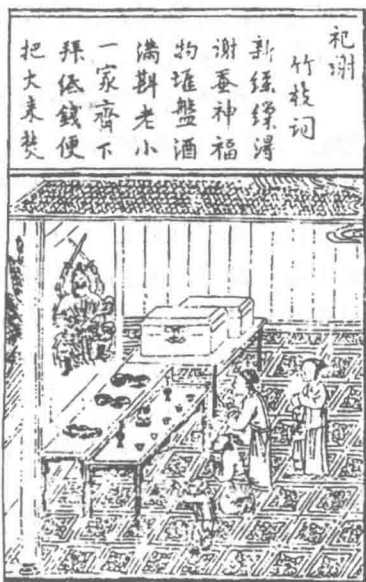 祀谢
竹枝词
新絲繰得
谢蚕神福
物堆盤酒
满斟老小
一家齊下
拜紙錢便
把火来焚